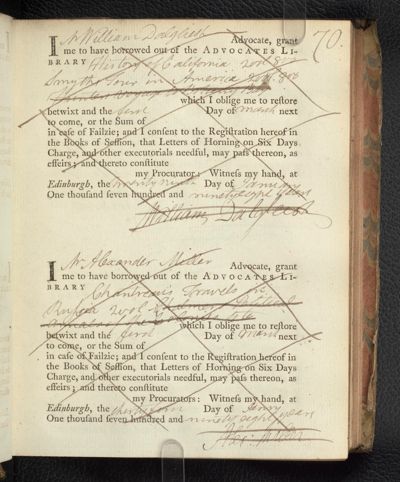 70.
I Mr William Dalgleish Advocate, grant
me to have borrowed out of the ADVOCATES LI-
BRARY History of California 2 vol 8vo
Smyth's Tour in America 2 vol. 8vo
which I oblige me to reſtore
betwixt and the first Day of March next
to come, or the Sum of
in caſe of Failzie; and I conſent to the Regiſtration hereof in
the Books of Seſſion, that Letters of Horning on Six Days
Charge, and other executorials needful, may paſs thereon, as
effeirs; and thereto conſtitute
my Procurators: Witneſs my hand, at
Edinburgh, the Day of January
One thouſand ſeven hundred and ninety
William Dalgleish
I Mr Alexander Miller Advocate, grant
me to have borrowed out of the ADVOCATES LI-
BRARY Chantreau's Travels in
Russia 2 vol
which I oblige me to reſtore
betwixt and the first Day of March next
to come, or the Sum of
in caſe of Failzie; and I conſent to the Regiſtration hereof in
the Books of Seſſion, that Letters of Horning on Six Days
Charge, and other executorials needful, may paſs thereon, as
effeirs; and thereto conſtitute
my Procurators: Witneſs my hand, at
Edinburgh, the Day of Janry
One thouſand ſeven hundred and ninety eight years
Alex: Miller